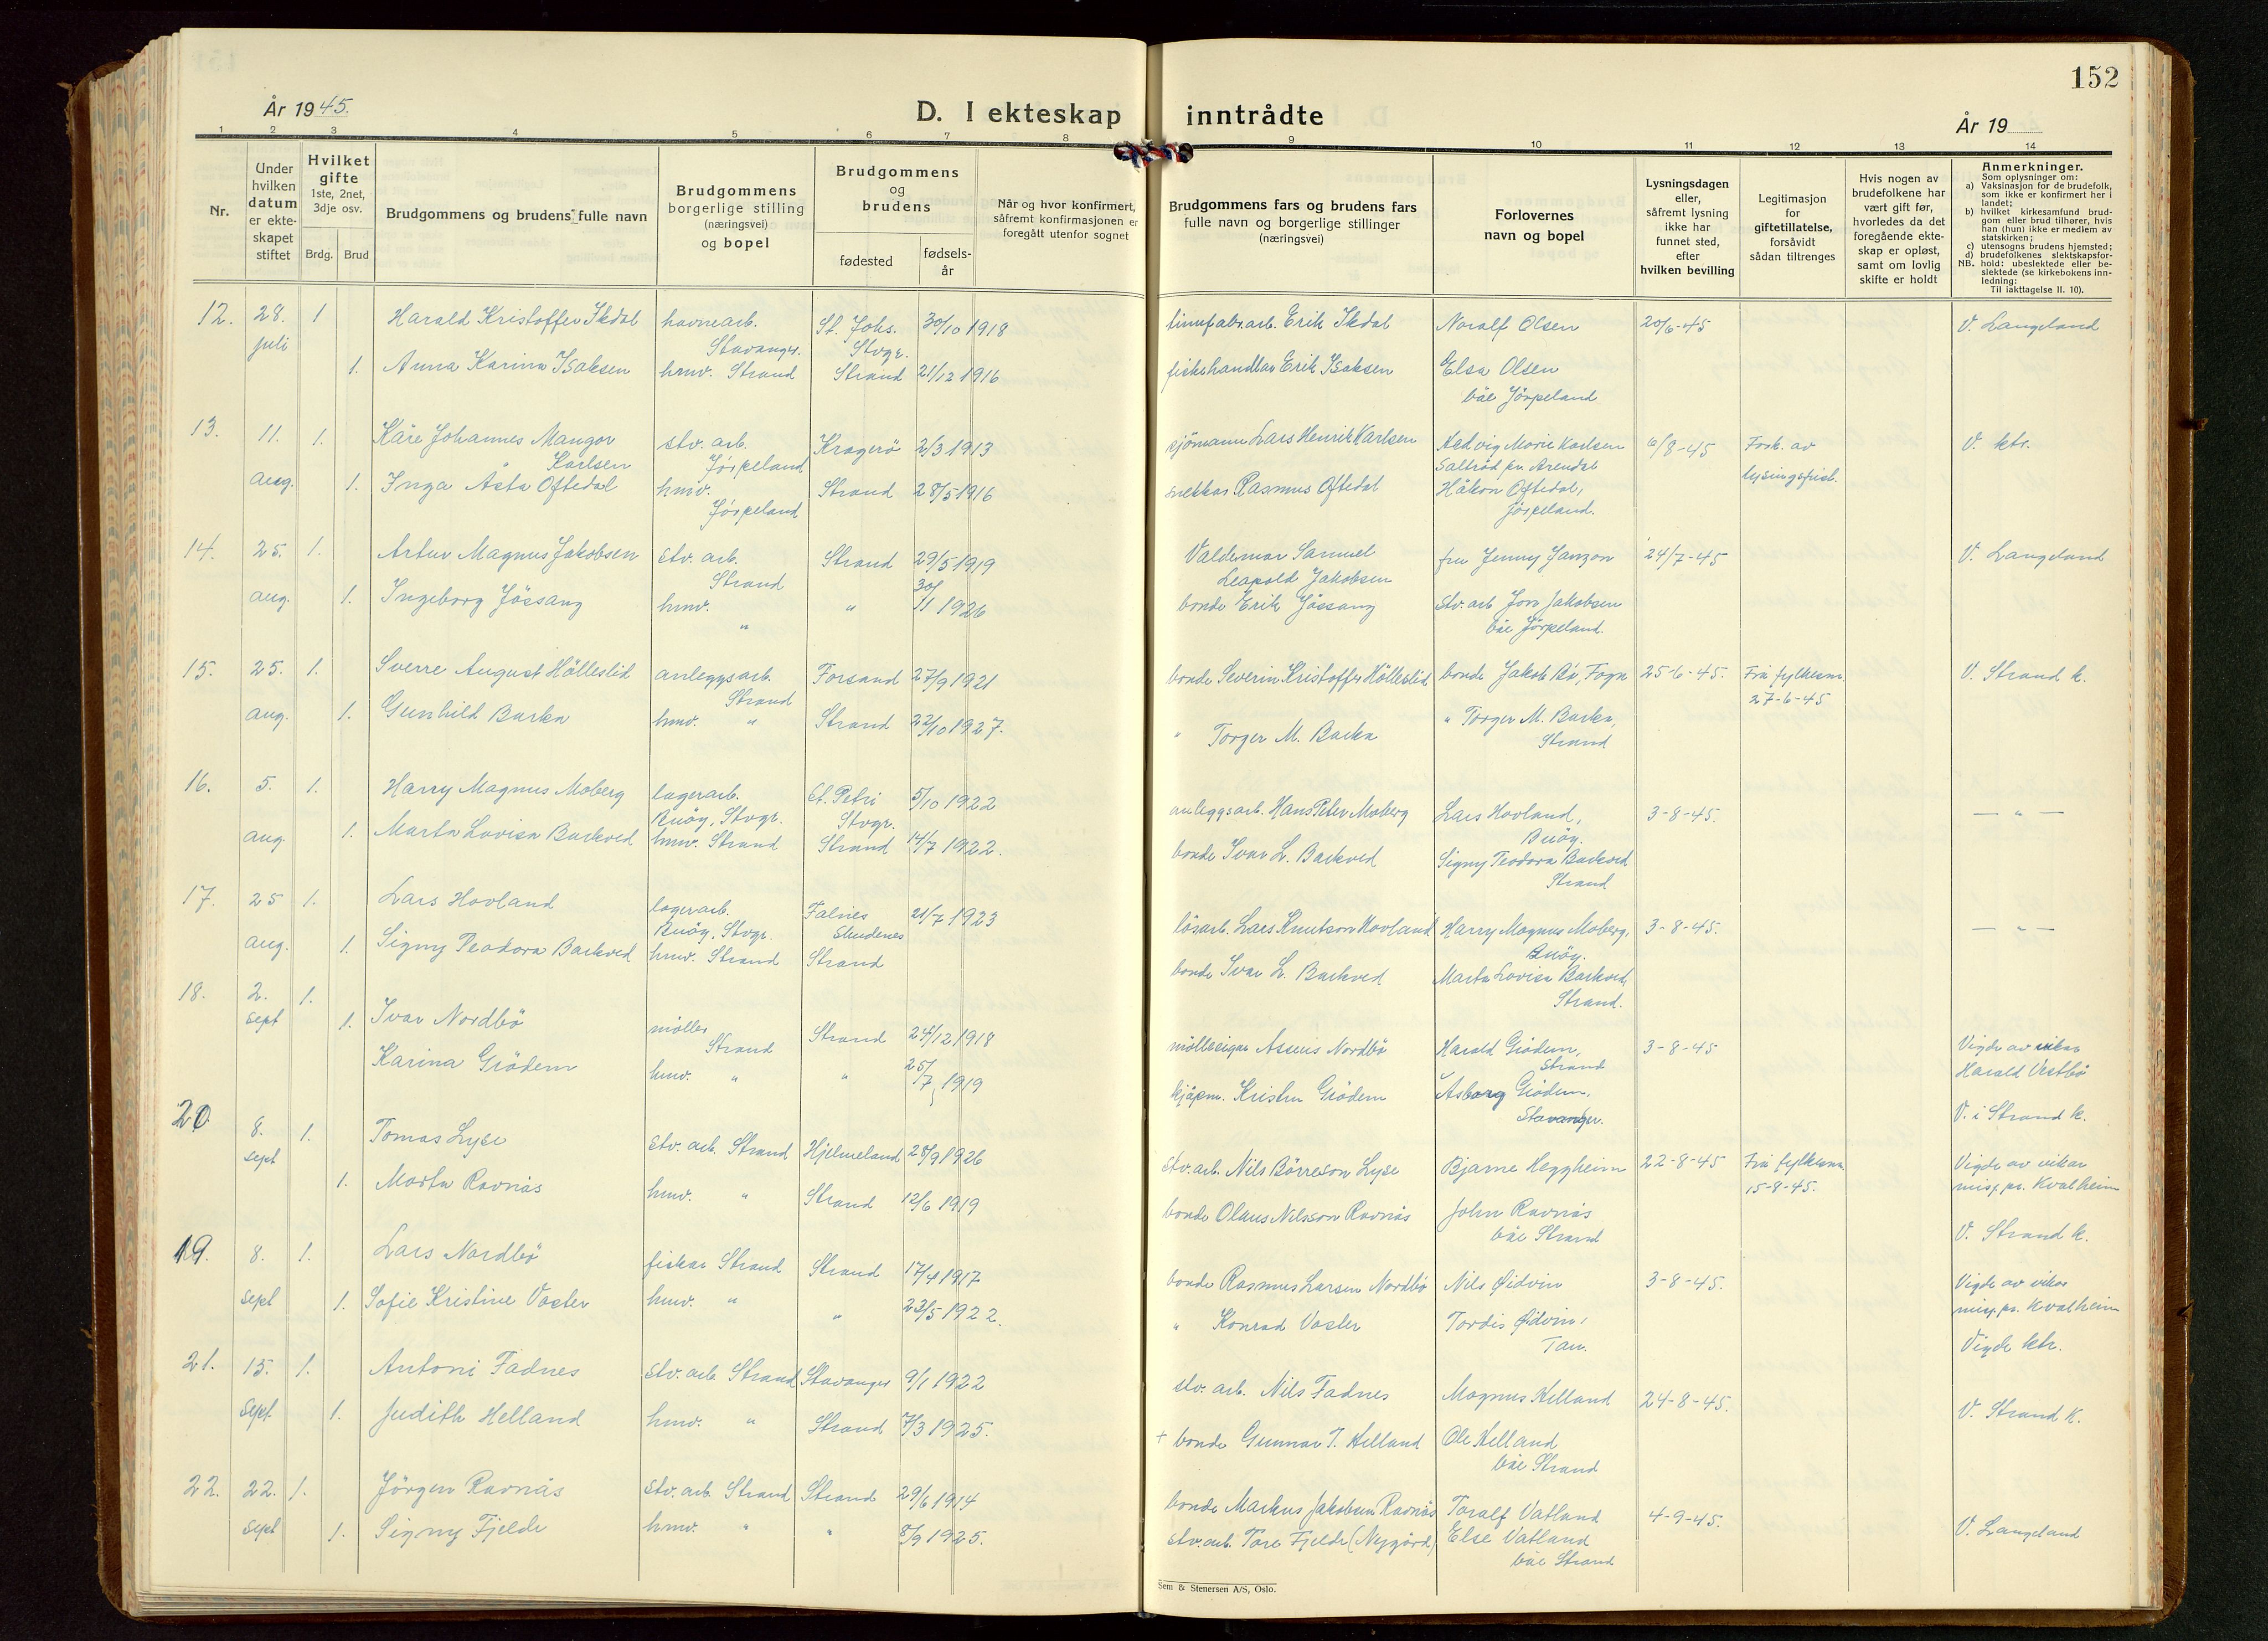 152
År 1945.
D. I ekteskap inntrådte
År 19
1 2 3 4 5 6 7 8 9 10 11 12 13 14
Nr.
Under hvilken datum er ekteskapet stiftet
Hvilket gifte 1ste, 2net, 3dje osv.
Brdg. Brud
Brudgommens og brudens fulle navn
Brudgommens borgerlige stilling (næringsvei) og bopel
Brudgommens og brudens
fødested
fødselsår
Når og hvor konfirmert, såfremt konfirmasjonen er foregått utenfor sognet
Brudgommens fars og brudens fars fulle navn og borgerlige stillinger (næringsvei)
Forlovernes navn og bopel
Lysningsdagen eller, såfremt lysning ikke har funnet sted, efter hvilken bevilling
Legitimasjon for giftetillatelse, forsåvidt sådan tiltrenges
Hvis nogen av brudefolkene har vært gift før, hvorledes da det foregående ekteskap er opløst, samt om lovlig skifte er holdt
Anmerkninger.
Som oplysninger om:
a) Vaksinasjon for de brudefolk, som ikke er konfirmert her i landet;
b) hvilket kirkesamfund brudgom eller brud tilhører, hvis han (hun) ikke er medlem av statskirken;
c) utensogns brudens hjemsted;
d) brudefolkenes slektskapsforhold: ubeslektede eller beslektede (se kirkebokens innledning:
NB. Til iakttagelse II. 10).
12. 28. 1 Harald Kristoffer Ikdal havnearb. St. Johs. 30/10 1918 Erik Ikdal Noralf Olsen 20/6-45 V. Langeland
juli Stavanger. Stvgr.
1. Anna Karina Isaksen hmv. Strand Strand 21/12 1916 fiskehandlar Erik Isaksen Elsa Olsen
båe Jörpeland
13. 11. 1. Kåre Johannes Mangor stv. arb. Kragerö 2/3 1913 sjömann Lars Henrik Karlsen Hedvig Marie Karlsen 6/8-45 Fork. av V. ktr.
Karlsen Jörpeland Saltröd pr. Arendal
aug. 1. Inga Åsta Oftedal hmv. Strand 28/5 1916 snekkar Rasmus Oftedal Håkon Oftedal, lysingsfrist.
Jörpeland Jörpeland.
14. 25. 1. Artur Magnus Jakobsen stv. arb. Strand 29/5 1919 Valdemar Samuel fru Jenny Janzon 24/7-45 V. Langeland
Strand Leopold Jakobsen
aug. 1. Ingeborg Jössang hmv. " 30/11 1926 bonde Erik Jössang Stv. arb. Jakobsen
" båe Jörpeland.
15. 25. 1. Sverre August Hölleslid anleggsarb. Forsand 27/9 1921 bonde Severin Kristoffer Hölleslid bonde Jakob Bö, Fogn 25-6-45. Frå fylkesm. V. Strand k.
Strand 27-6-45
aug. 1. Gunhild Barka hmv. " Strand 22/10 1927. " Torger M. Barka " Torger M. Barka,
Strand
16. 5. 1. Harry Magnus Moberg lagerarb. St. Petri 5/10 1922 anleggsarb. Hans Peter Moberg Lars Hovland, 3-8-45. — " —
Buöy, Stvgr. Stvgr. Buöy.
aug. 1. Marta Lovisa Barkved hmv. Strand Strand 14/7 1922. bonde Ivar L. Barkved Signy Teodora Barkved
Strand
17. 25 1. Lars Hovland lagerarb. Falnes 21/7 1923 lösarb. Lars Knutson Hovland Harry Magnus Moberg, 3-8-45. — " —
Buöy, Stvgr. Skudenes Buöy.
aug. 1. Signy Teodora Barkved hmv. Strand Strand bonde Ivar L. Barkved Marta Lovisa Barkved,
Strand.
18. 2. 1. Ivar Nordbö möller Strand 1918 mölleeigar Nordbö Harald Grödem, 3-8-45 Vigde av vikar
sept 1. Strand Strand Harald Vestbö
Karina Grödem hmv. " " 25/7 1919 kjöpm. Kristen Grödem Åsborg Grödem, V. i Strand k.
Stavanger.
20 8. 1. Tomas Lyse stv. arb. Strand Hjelmeland 28/9 1926 stv. arb. Nils Börreson Lyse Bjarne Heggheim 22-8-45 Frå fylkesm. Vigde av vikar
sept 15-8-45. misj. pr. Kvalheim
1. Marta Ravnås hmv. " Strand 12/6 1919 bonde Olaus Nilsson Ravnås John Ravnås
båe Strand V. Strand k.
19. 8. 1. Lars Nordbö fiskar Strand Strand 17/4 1917 bonde Rasmus Larsen Nordbö Nils Øidvin 3-8-45. Vigde av vikar
misj. pr. Kvalheim
sept 1. Sofie Kristine Voster hmv. " " 23/5 1922. " Konrad Voster Tordis Øidvin,
Tau. Vigde ktr.
21. 15. 1. Antoni Fadnes stv. arb. Strand Stavanger 9/1 1922 stv. arb. Nils Fadnes Magnus Helland 24-8-45.
sept. 1. Judith Helland hmv. " Strand 7/3 1925. + bonde Gunnar T. Helland Ole Helland V. Strand K.
båe Strand
22. 22. 1. Jörgen Ravnås stv. arb. Strand Strand 29/6 1914 bonde Markus Jakobsen Ravnås Toralf Vatland 4-9-45.
sept 1. Signy Fjelde hmv. " " 8/9 1925. stv. arb. Tore Fjelde (Nygård) Else Vatland V. Langeland
båe Strand
Sem & Stenersen A/S, Oslo.